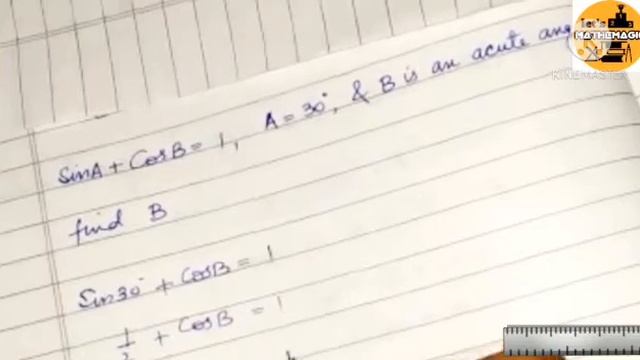 Let's
MATHEMAGIC
KINEMASTER
SinA + CosB = 1, A = 30°, & B is an acute
find B
Sin30° + CosB = 1
1/2 + CosB = 1